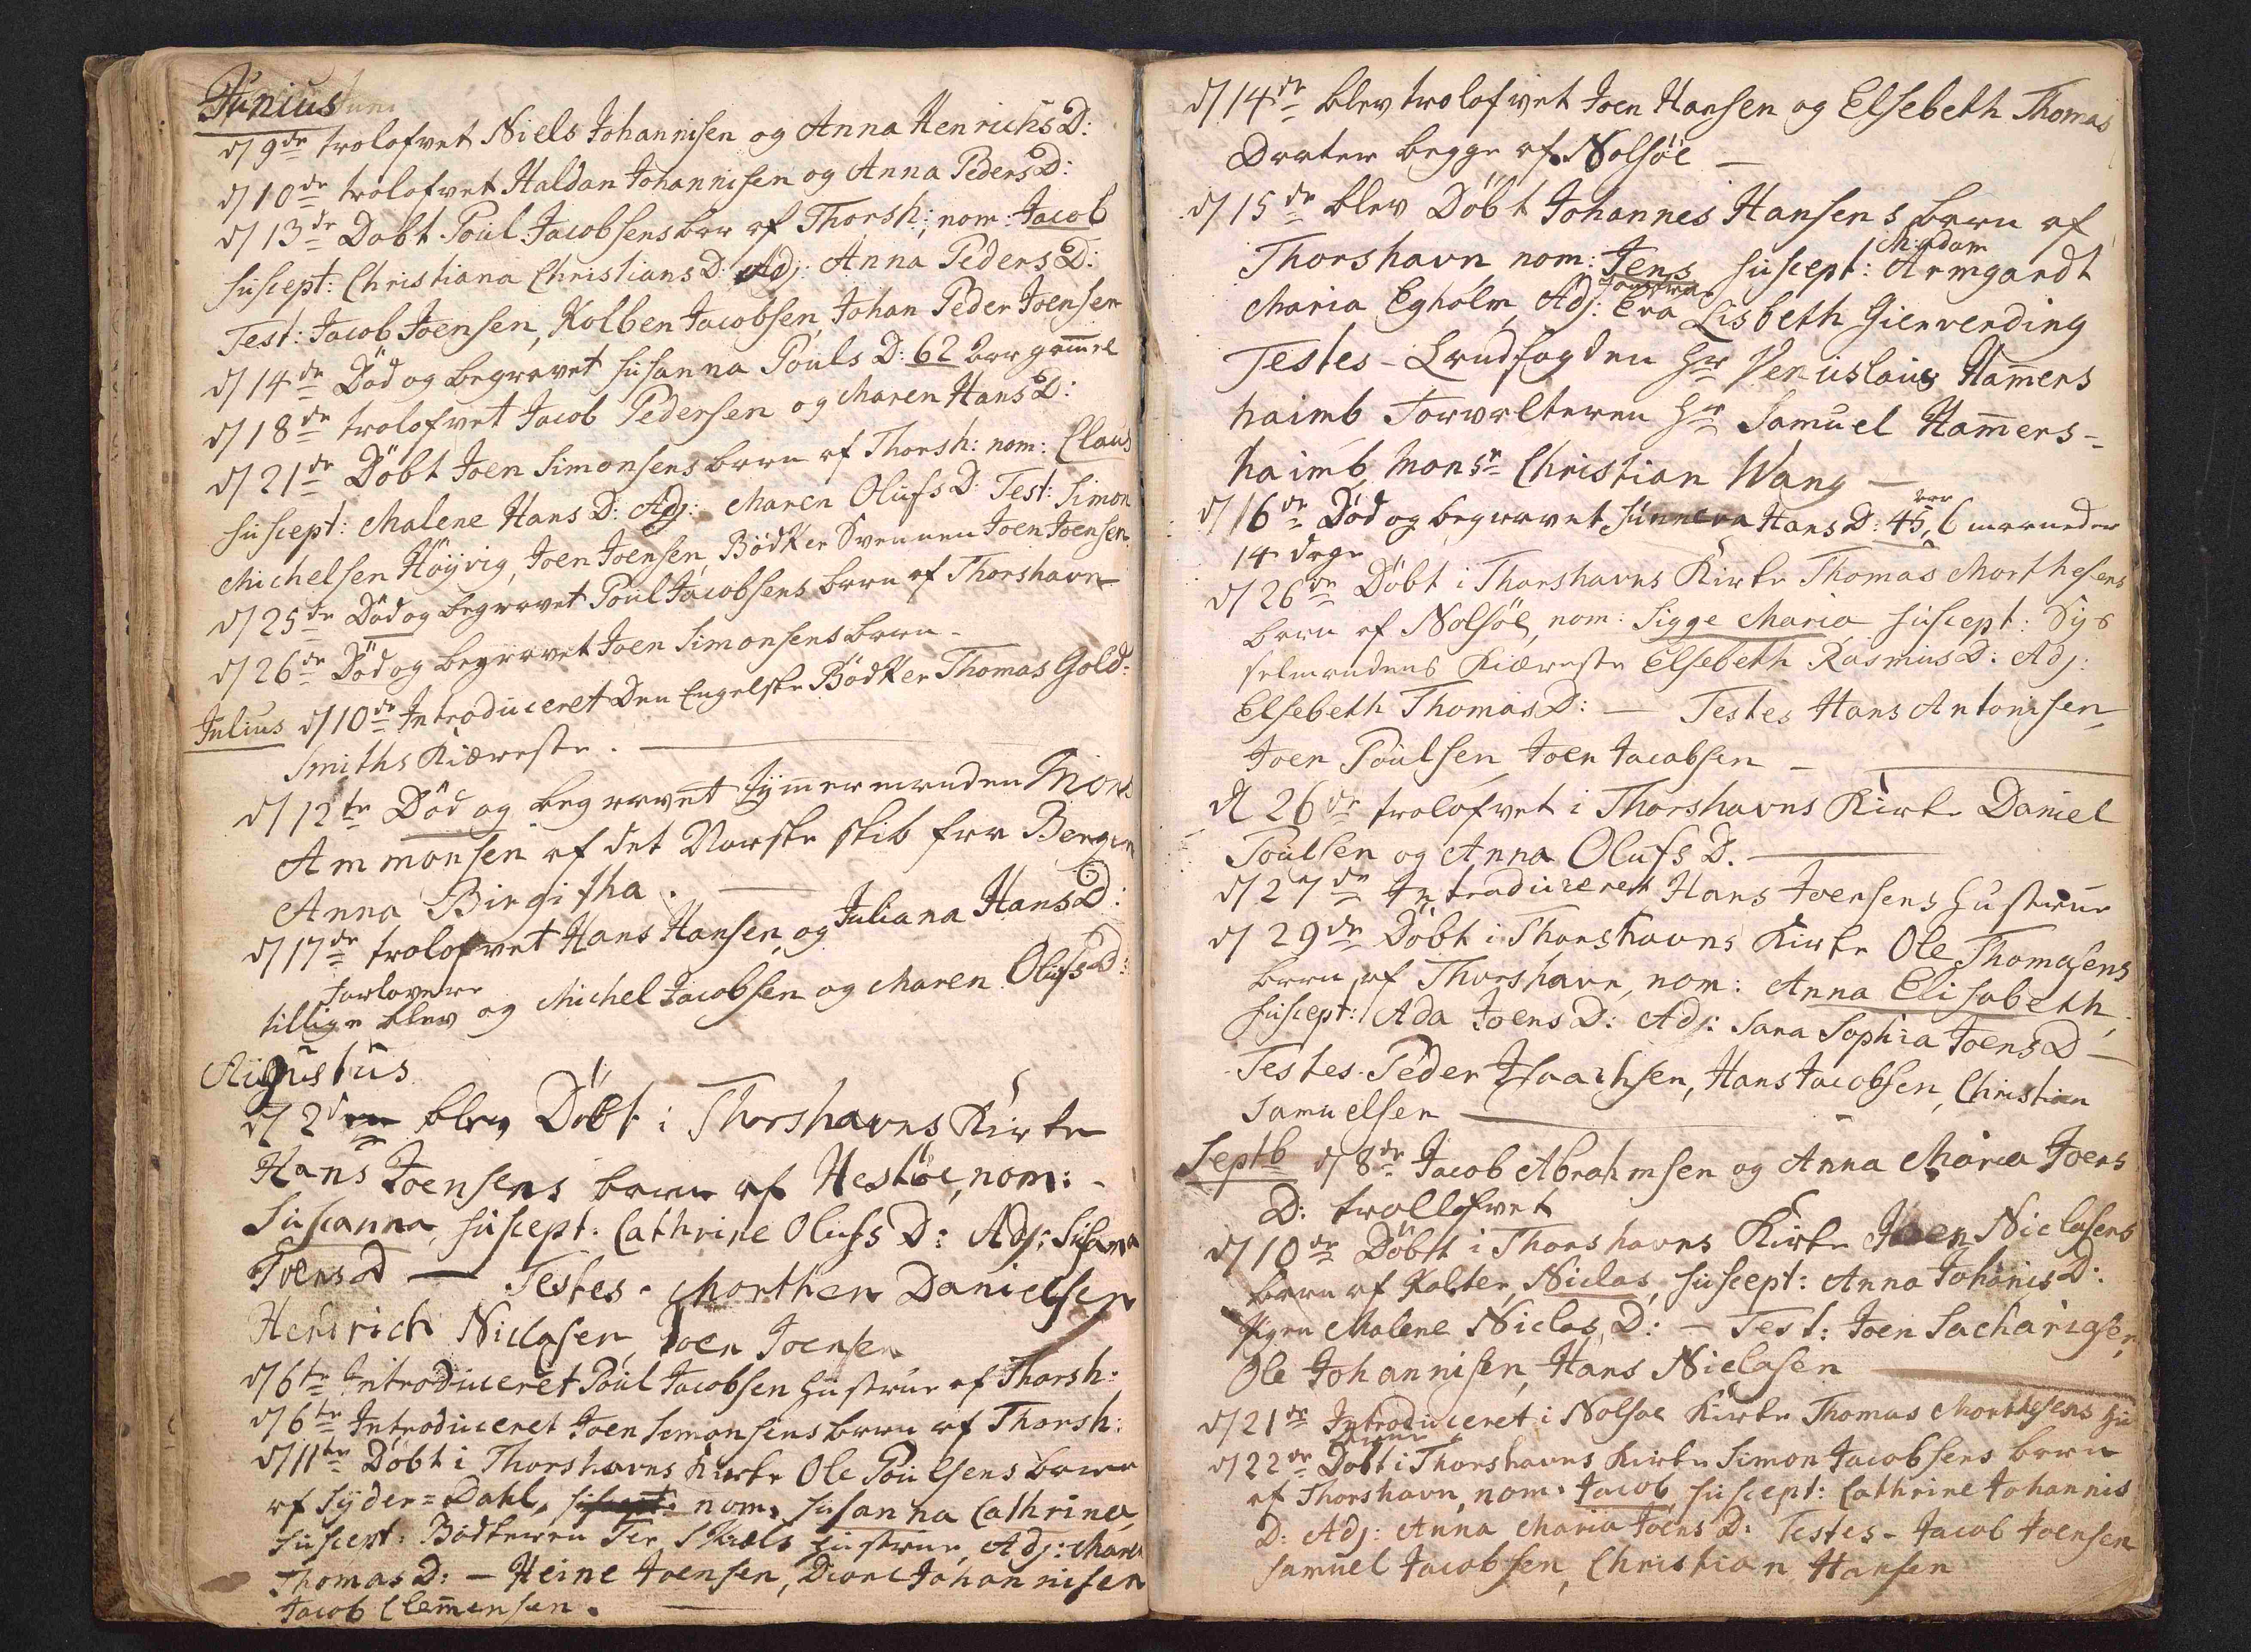 Junius
d/ 9de trolofvet Niels Johannisen og Anna HenrichsD:
d/ 10de trolofvet Haldan Johannisen og Anna PedersD:
d/ 13de Döbt Poul Jacobsens barn af Thorsh: nom: Jacob
suscept: Christiana ChristiansD: Adj: Anna PedersD:
Test: Jacob Joensen, Kolben Jacobsen, Johan Peder Joensen
d/ 14de Död og begravet Susanna Pouls D: 62 aar gam̄el
d/ 18de trolofvet Jacob Pedersen og Maren HansD:
d/ 21de Döbt Joen Simonsens barn af Thorsh: nom: Claus
suscept: Malene Hans D: Adj: Maren OlufsD: Test: Simon
Michelsen Höyvig, Joen Joensen, Bödker Svennen Joen Joensen.
d/ 25de Död og begravet Poul Jacobsens barn af Thorshavn
d/ 26de Död og begravet Joen Simonsens barn –
Julius d/ 10de Introduceret Den Engelske Bödker Thomas Gold:
Smiths Kiæreste. —
d/ 12te Död og begravet Tym̄ermanden Mons
Ammonsen af det Norske skib fra Bergen
Anna Birgitha. —
d/ 17de trolofvet Hans Hansen og Juliana HansD:
Forlovere
tillige blev og Michel Jacobsen og Maren OlufsD:
Augustus
d/ 2den blev Döbt i Thorshavns Kirke
Hans Joensens barn af Hestöe, nom: –
Suscanna, suscept: Cathrine Olufs D: Adj: Susanna
JoensD — Testes. Morthen Danielsen
Hendrich Niclasen, Joen Joensen
d/ 6te Introduceret Poul Jacobsen hustrue af Thorsh:
d/ 6te Introduceret Joen Simonsens barn af Thorsh:
d/ 11te Döbt i Thorshavns Kirke Ole Poulsens barn
af Syder=Dahl, nom: Susanna Cathrina,
suscept: Bödkeren Skæls hustrue, Adj: Maren
ThomasD: – Heine Joensen, Johannisen
Jacob Clem̄ensen. —
d/ 14de blev trolofvet Joen Hansen og Elsebeth Thomas
Daater begge af Nolsöe —
d/ 15de blev Döbt Johannes Hansens barn af
Madam
Thorshavn nom: Jens suscept: Armgardt
Jomfrue
Maria Egholm, Adj: Eva Lisbeth Gierverding
Testes – Landfogden Hr Venislaus Ham̄ers
haimb Forvalteren Hr Samuel Ham̄ers-
haimb, Monsr Christian Wang —
aar
d/ 16de Död og begravet Sunneva HansD: 45, 6 maaneder
14 dage
d/ 26de Döbt i Thorshavns Kirke Thomas Morthesens
barn af Nolsöe, nom: Sigge Maria suscept: Sys
selmandens Kiæreste Elsebeth RasmusD: Adj:
Elsebeth ThomasD: — Testes Hans Antonisen
Joen Poulsen, Joen Jacobsen –
d/ 26de trolofvet i Thorshavns Kirke Daniel
Poulsen og Anna Olufs D. —
d/ 27de Introduceret Hans Joensens hustrue
d/ 29de Döbt i Thorshavns Kirke Ole Thomasens
barn, af Thorshavn, nom: Anna Elisabeth,
suscept: Ada JoensD: Adj: Sara Sophia JoensD –
Testes. Peder Isaachsen, Hans Jacobsen, Christian
Samuelsen —
Septb d/ 8de Jacob Abrahmsen og Anna Maria Joens
D: trollofvet
d/ 10de Döbt i Thorshavns Kirke Joen Niclasens
barn af Kolter, Niclas, suscept: Anna JohanisD:
Pigen Malene Niclas D: – Test: Joen Sachariasen,
Ole Johannisen, Hans Niclasen
d/ 21de Introduceret i Nolsöe Kirke Thomas Morthesens hu
d/ 22de Döbt i Thorshavns Kirke Simon Jacobsens barn
af Thorshavn, nom: Jacob, suscept: Cathrine Johannis
D: Adj: Anna Maria JoensD: Testes – Jacob Joensen
Samuel Jacobsen, Christian Hansen